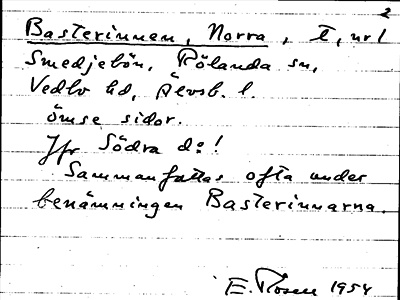 2
Basterinnen, Norra, t, nr 1
Smedjebön, Rölanda sn,
Vedbo hd, Älvsb. l.
ömse sidor.
Jfr Södra d:o!
Sammanfattas ofta under
benämningen Basterinnarna.
E. Rosen 1954